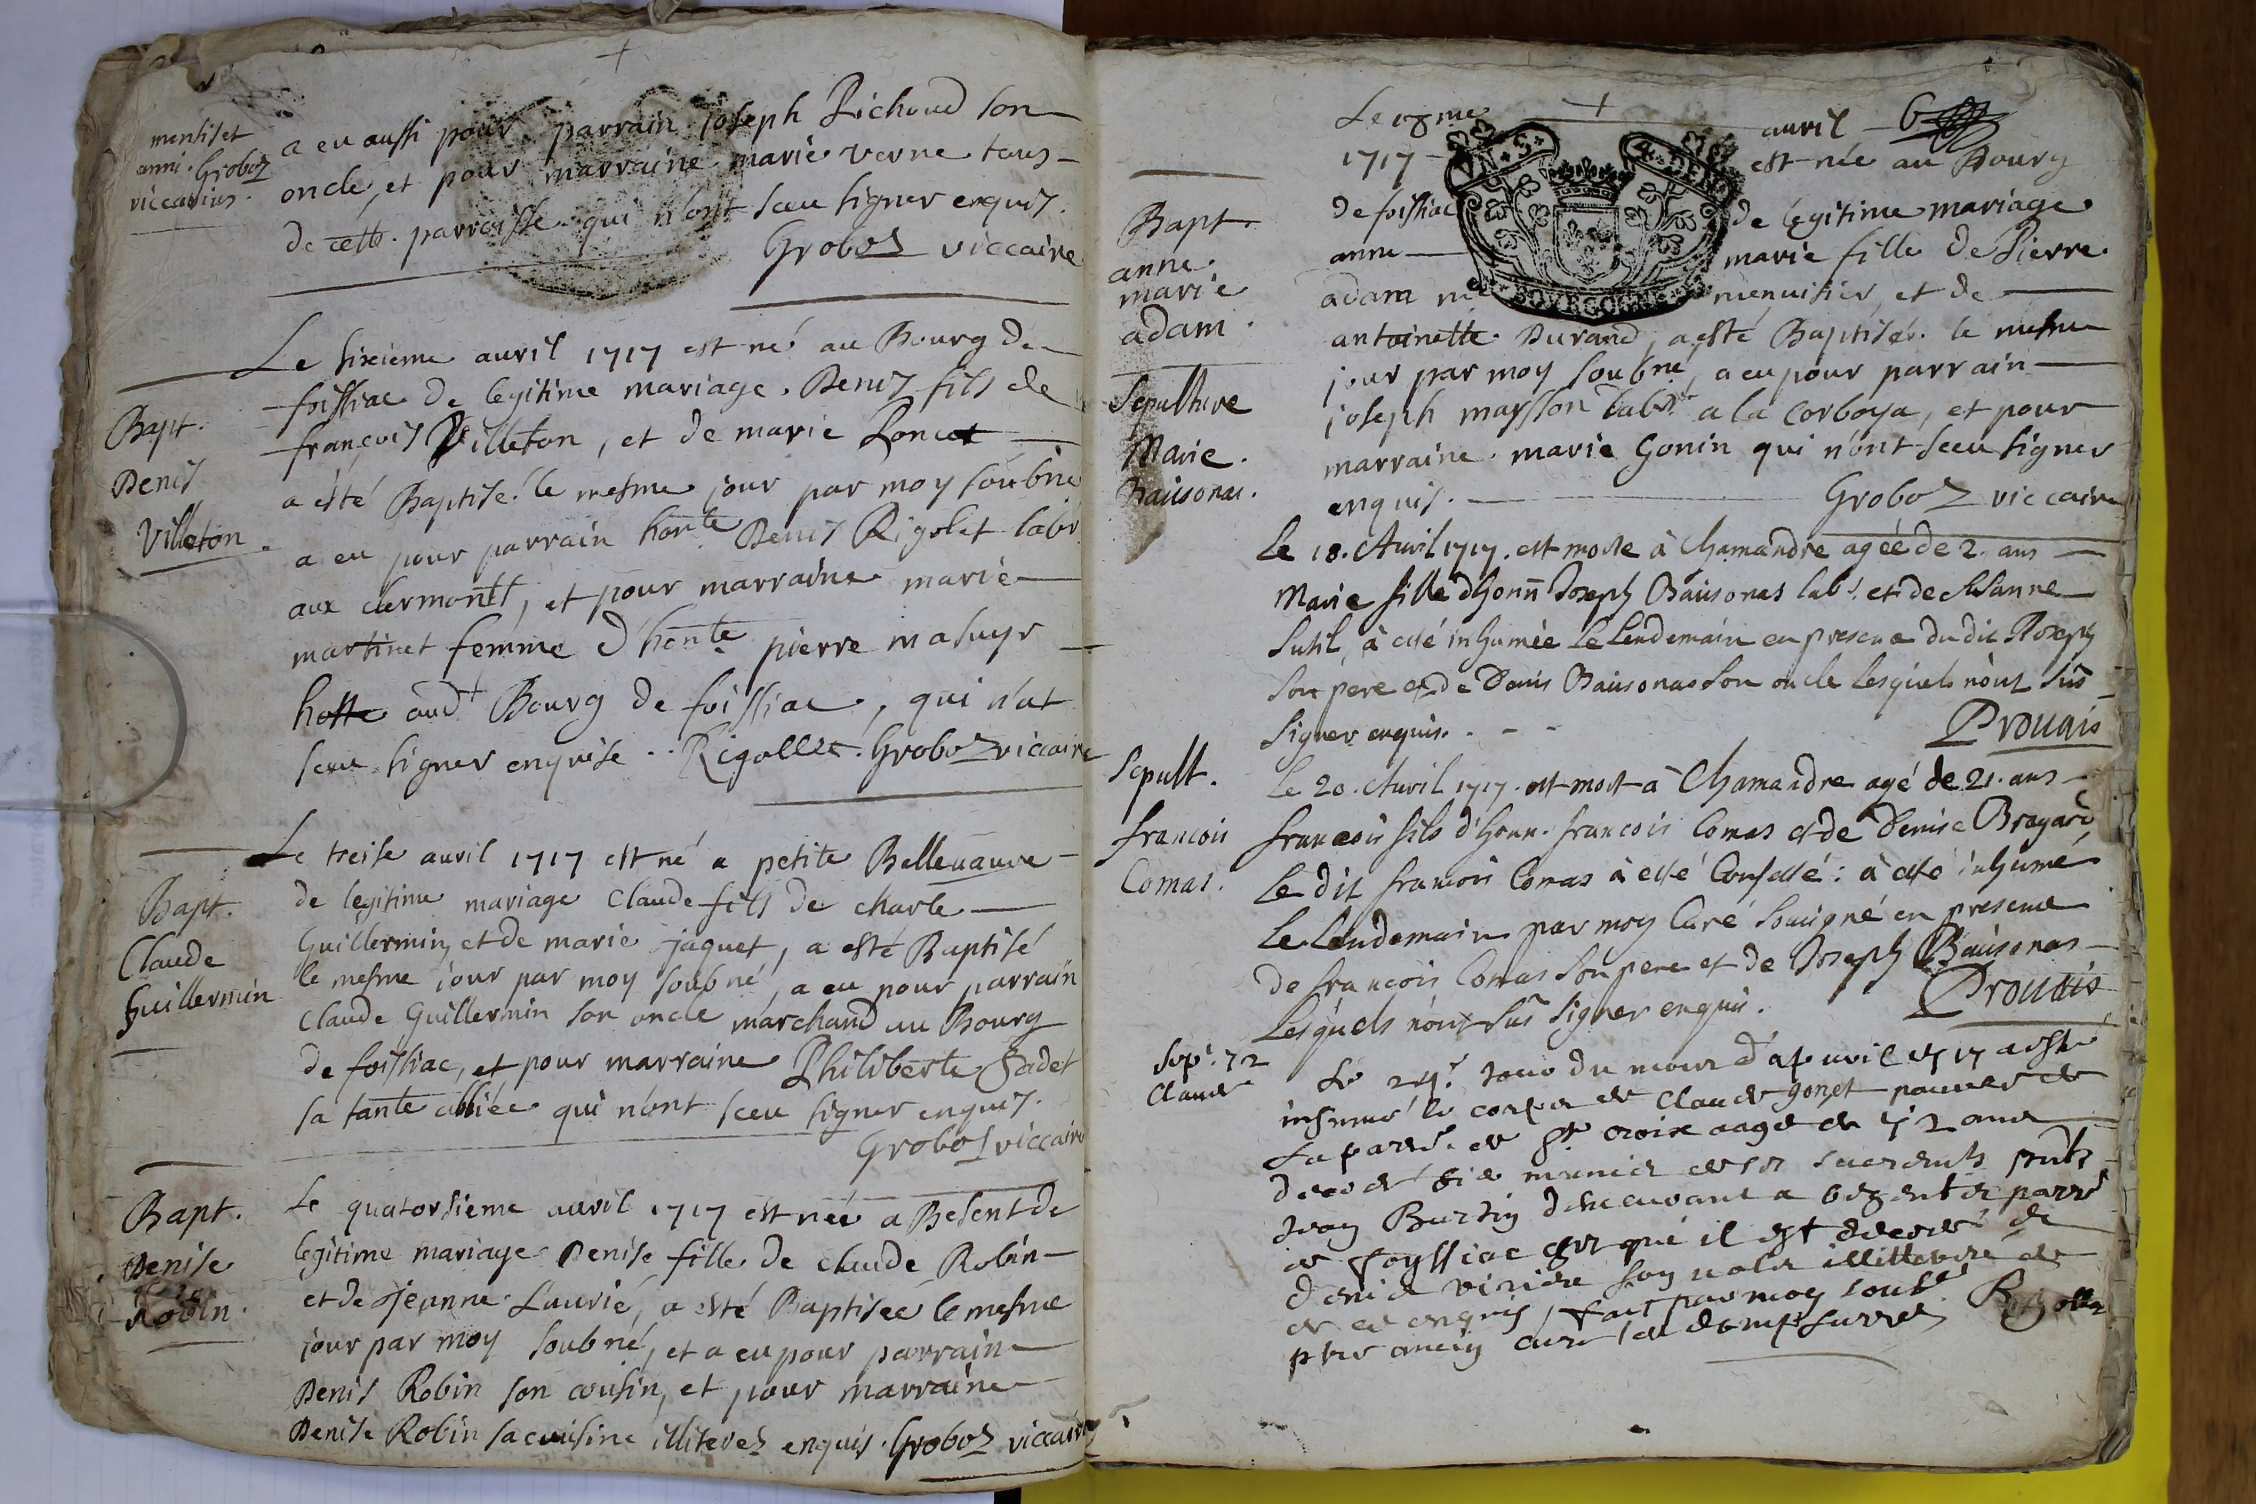 mensis et
anni. Groboz
viccarius.
a eu aussi pour parrain joseph Richoud son
oncle, et pour marraine marie verne tous
de cette parroisse qui n'ont sceu signer enquis.
Groboz viccaire
Bapt.
Denis
Villeton
Le sixieme auril 1717 est né au Bourg de
foissiac de legitime mariage. Denis fils de
françois Villeton, et de marie Poncet
a esté Baptisé le mesme jour par moy soubné
a eu pour parrain honte Denis Rigolet labr
aux clermontt, et pour marraine marie
martinet femme d'honte pierre masuyr
hoste audt Bourg de foissiac, qui n'at
sceu signer enquise. Rigollet. Groboz viccaire
Bapt.
Claude
Guillermin
Le treise auril 1717 est né a petite Belleuauure
de legitime mariage Claude fils de charle
Guillermin, et de marie jaquet, a esté Baptisé
le mesme jour par moy soubné, a eu pour parrain
Claude Guillermin son oncle marchand au Bourg
de foissiac, et pour marraine Philiberte Sadet
sa tante alliée qui n'ont sceu signer enquis.
Groboz viccaire
Bapt.
Denise
Robin.
Le quatorsieme auril 1717 est née a Besent de
legitime mariage Denise fille de claude Robin
et de jeanne Laurié, a esté Baptisee le mesme
jour par moy soubné, et a eu pour parrain
Denis Robin son cousin, et pour marraine
Denise Robin sa cousine illiterez enquis. Groboz viccaire
Bapt.
anne
marie
adam.
Le 18me auril 6
1717 est née au Bourg
de foissiac de legitime mariage
anne marie fille de Pierre
adam me menuisier, et de
antoinette Durand, a esté Baptisée le mesme
jour par moy soubné, a eu pour parrain
joseph masson labr a la Corboya, et pour
marraine marie Gonin qui n'ont sceu signer
enquis. Groboz viccaire
S 4 DEN
BOVRGOGNE
Sepulture
Marie
Baüsonas.
Le 18. Auril 1717. est morte à Chamandre agéé de 2. ans
Marie fille d'honn Joseph Baüsonas labr. et de Susanne
Sutil, à esté inhumée le lendemain en presence du dit Joseph
Son pere et de Denis Baüsonas son oncle lesquels n'ont sus
signer enquis.
Prouais
Sepult.
francois
Comas.
Le 20. Auril 1717. est mort à Chamandre agé de 21. ans
francois fils d'honn. francois Comas et de Denise Brayard
Le dit francois Comas à esté Confessé: à esté inhumé
Le Lendemain par moy Curé Souigné en presence
de francois Comas son pere et de Joseph Baüsonas
Lesquels n'ont sus signer enquis.
Prouais
Sepr. 72
Claude
Le 24e jour du mois d'apuril 1717 a esté
inhumé le corps de Claude gonet pauure de
La parre. de Ste croix aagé de 72 ans
decedé munie de ses sacrements
Burtin demeurant a parre
de foyssiac ou il est decedé de
denis illitteré de
de ce enquis, fait par moy soubt. Rigollet
ptre ancien curé de dompsurre